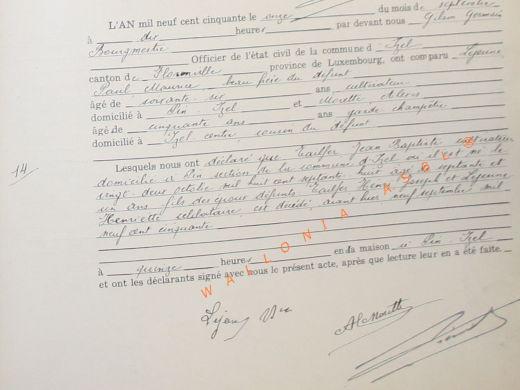 L'AN mil neuf cent cinquante le onze du mois de septembre
à dix heures par devant nous Gilson Germain
Bourgmestre Officier de l'état civil de la commune d' Izel
canton de Florenville province de Luxembourg, ont comparu Lejeune
Paul Maurice beau frère du défunt
âgé de soixante six ans cultivateur
domicilié à Pin Izel et Morette Alcès
âgé de cinquante ans garde champêtre
domicilié à Izel centre cousin du défunt
14
Lesquels nous ont déclaré que Jean Baptiste cultivateur
domicilié à Pin section de la commune d'Izel où il est né le
vingt deux octobre mil huit cent septante huit âgé de septante et
un ans fils des époux défunts Henri Joseph et Lejeune
Henriette célibataire, est décédé avant hier neuf septembre mil
neuf cent cinquante
à quinze heures en da maison à Pin - Izel
et ont les déclarants signé avec nous le présent acte, après que lecture leur en a été faite.
WALLONIA ASBL